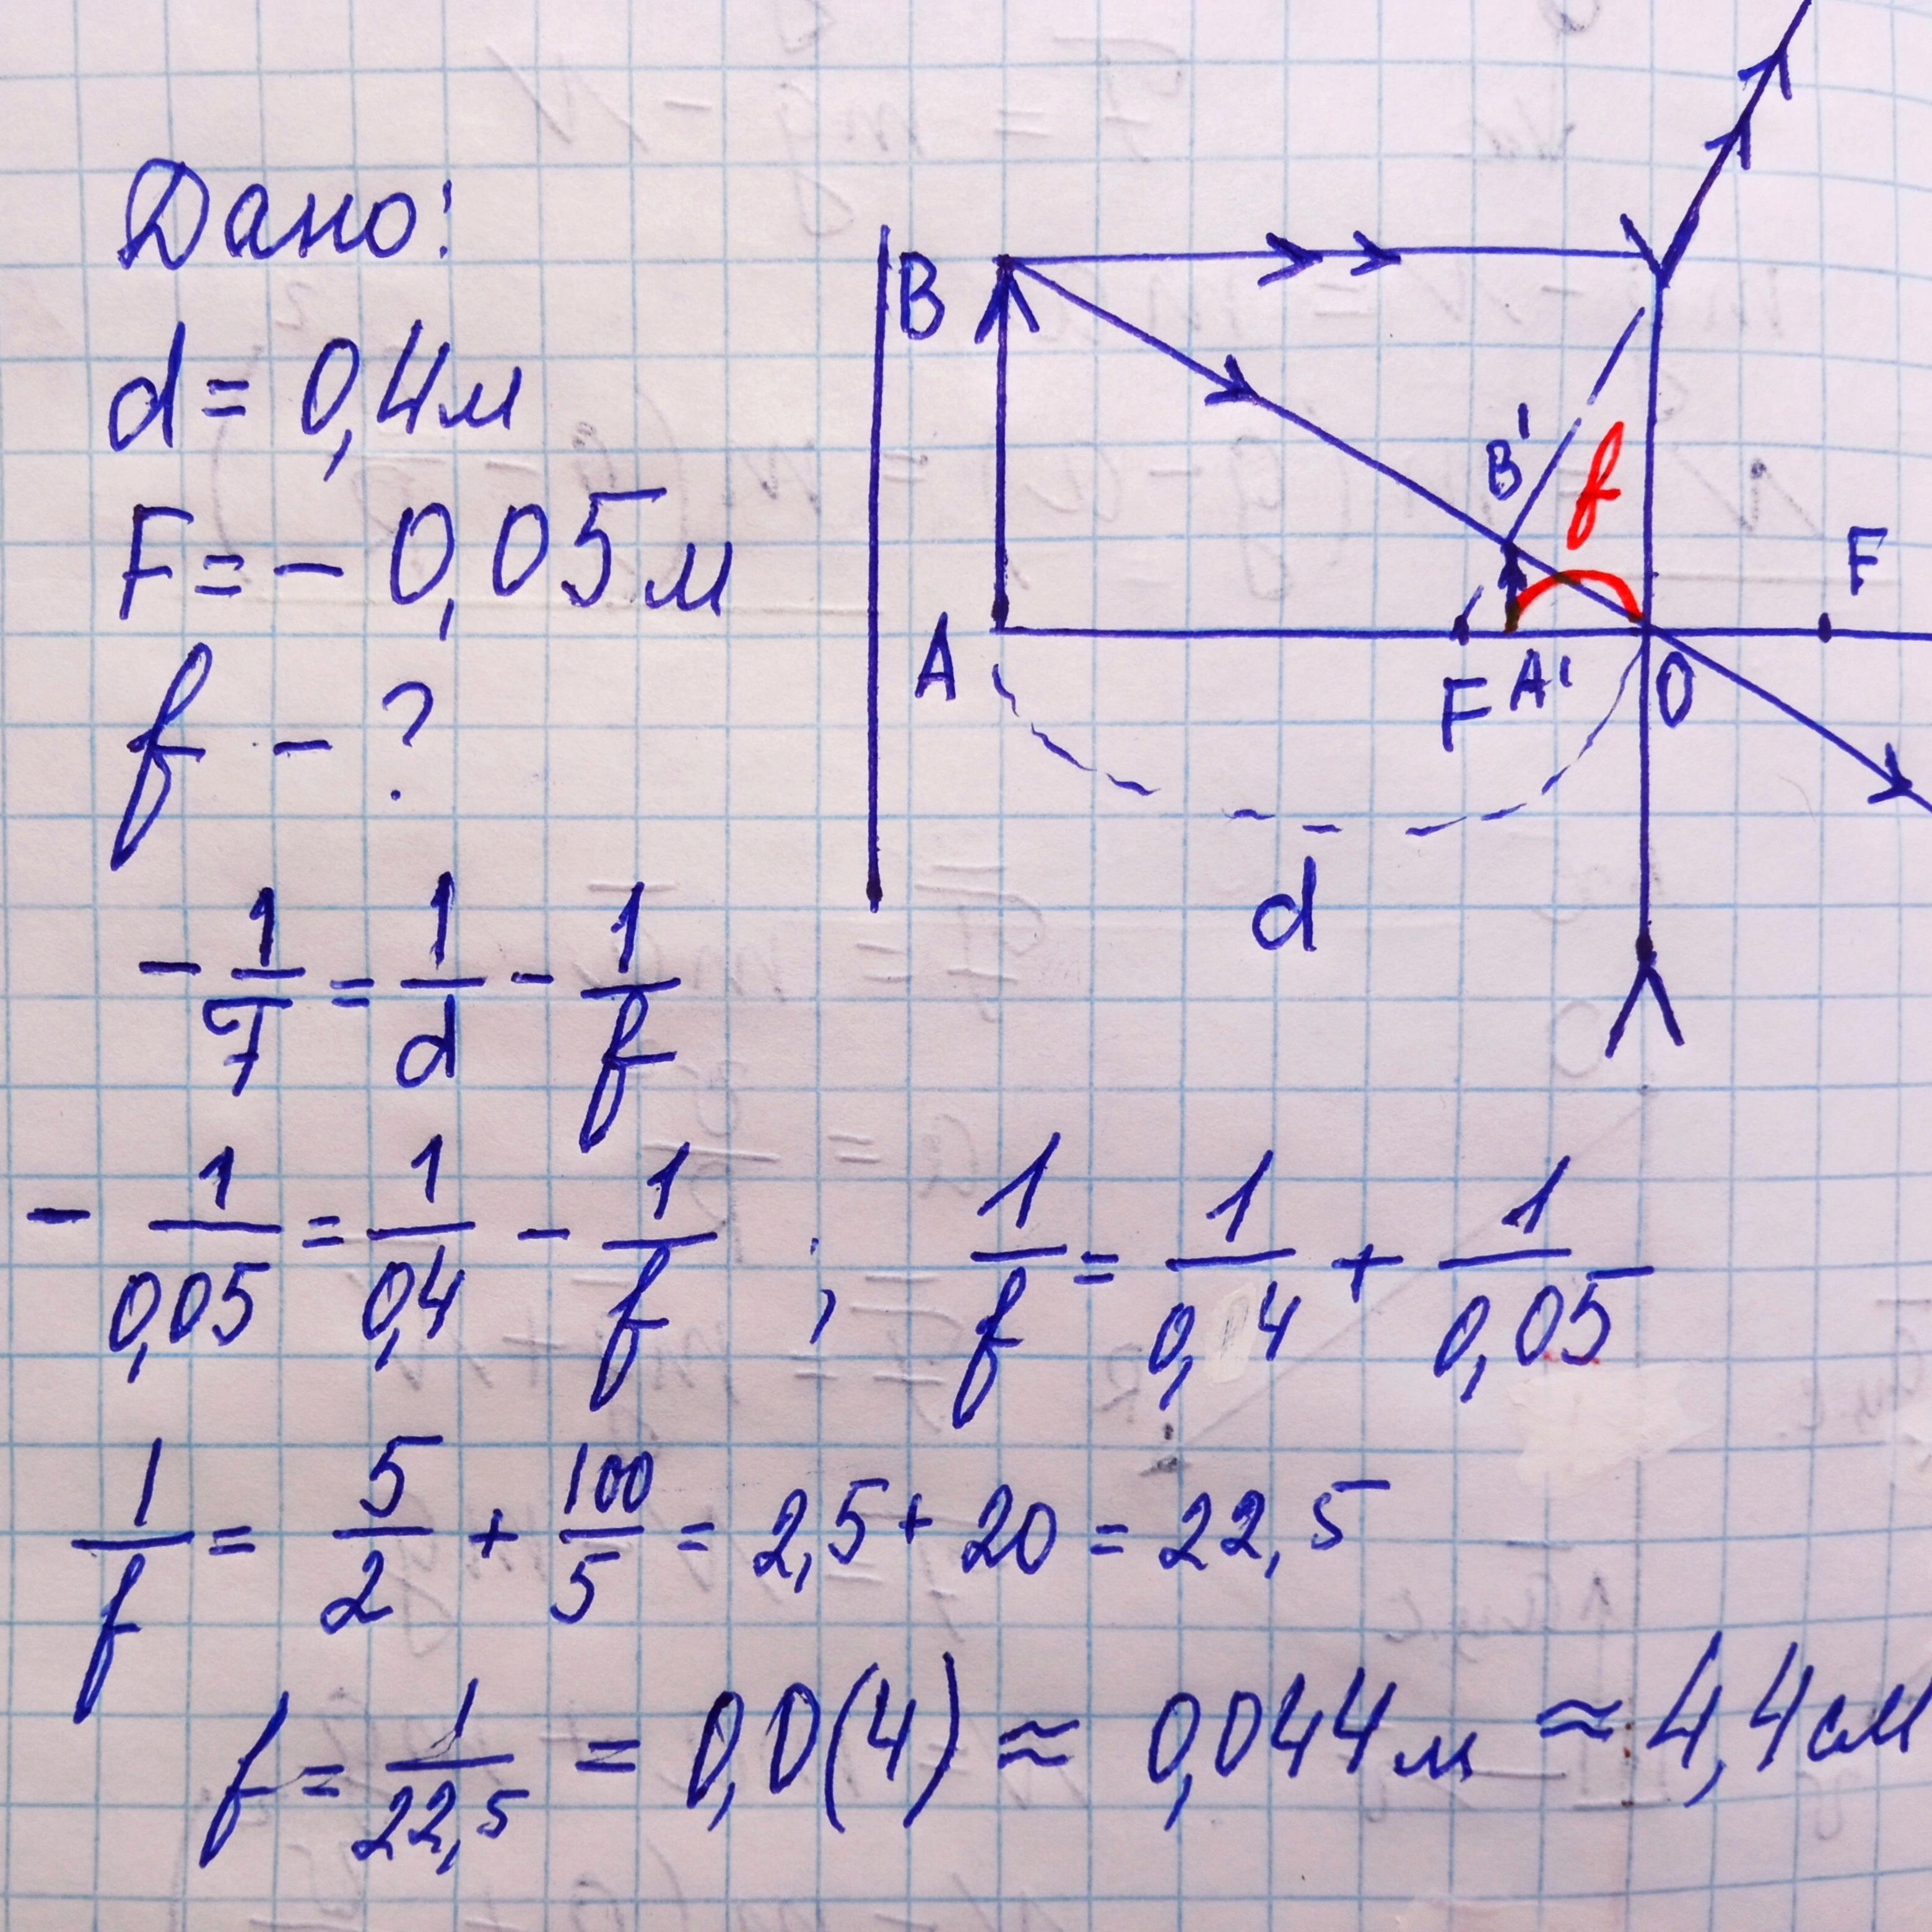 Дано:
d = 0,4м
F = - 0,05м
f - ?
B
A
B'
f
F
F A' O
d
- 1/F = 1/d - 1/f
- 1/0,05 = 1/0,4 - 1/f ; 1/f = 1/0,4 + 1/0,05
1/f = 5/2 + 100/5 = 2,5 + 20 = 22,5
f = 1/22,5 = 0,0(4) ≈ 0,044м ≈ 4,4см